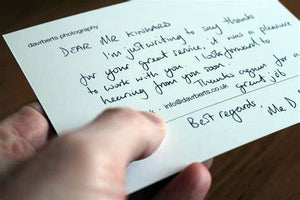 davrberts photography
DEAR MR KINNAIRD
I'm just writing to say thanks
for your great service, it was a pleasure
to work with you. I look forward to
hearing from you soon.
Thanks again for a
great job
: info@davrberts.co.uk
Best regards, Me D